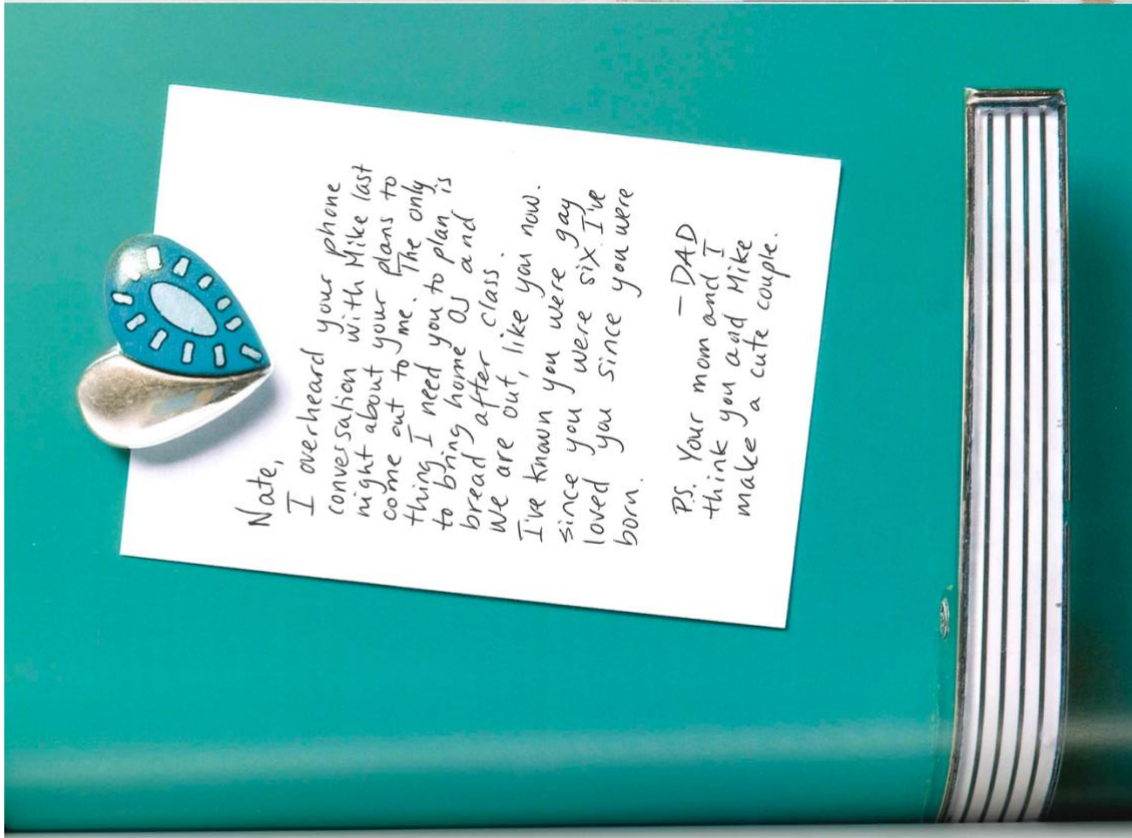 Nate,
I overheard your phone
conversation with Mike last
night about your plans to
come out to me. The only
thing I need you to plan is
to bring home OJ and
bread after class.
We are out, like you now.
I've known you were gay
since you were six. I've
loved you since you were
born.
— DAD
P.S. Your mom and I
think you and Mike
make a cute couple.